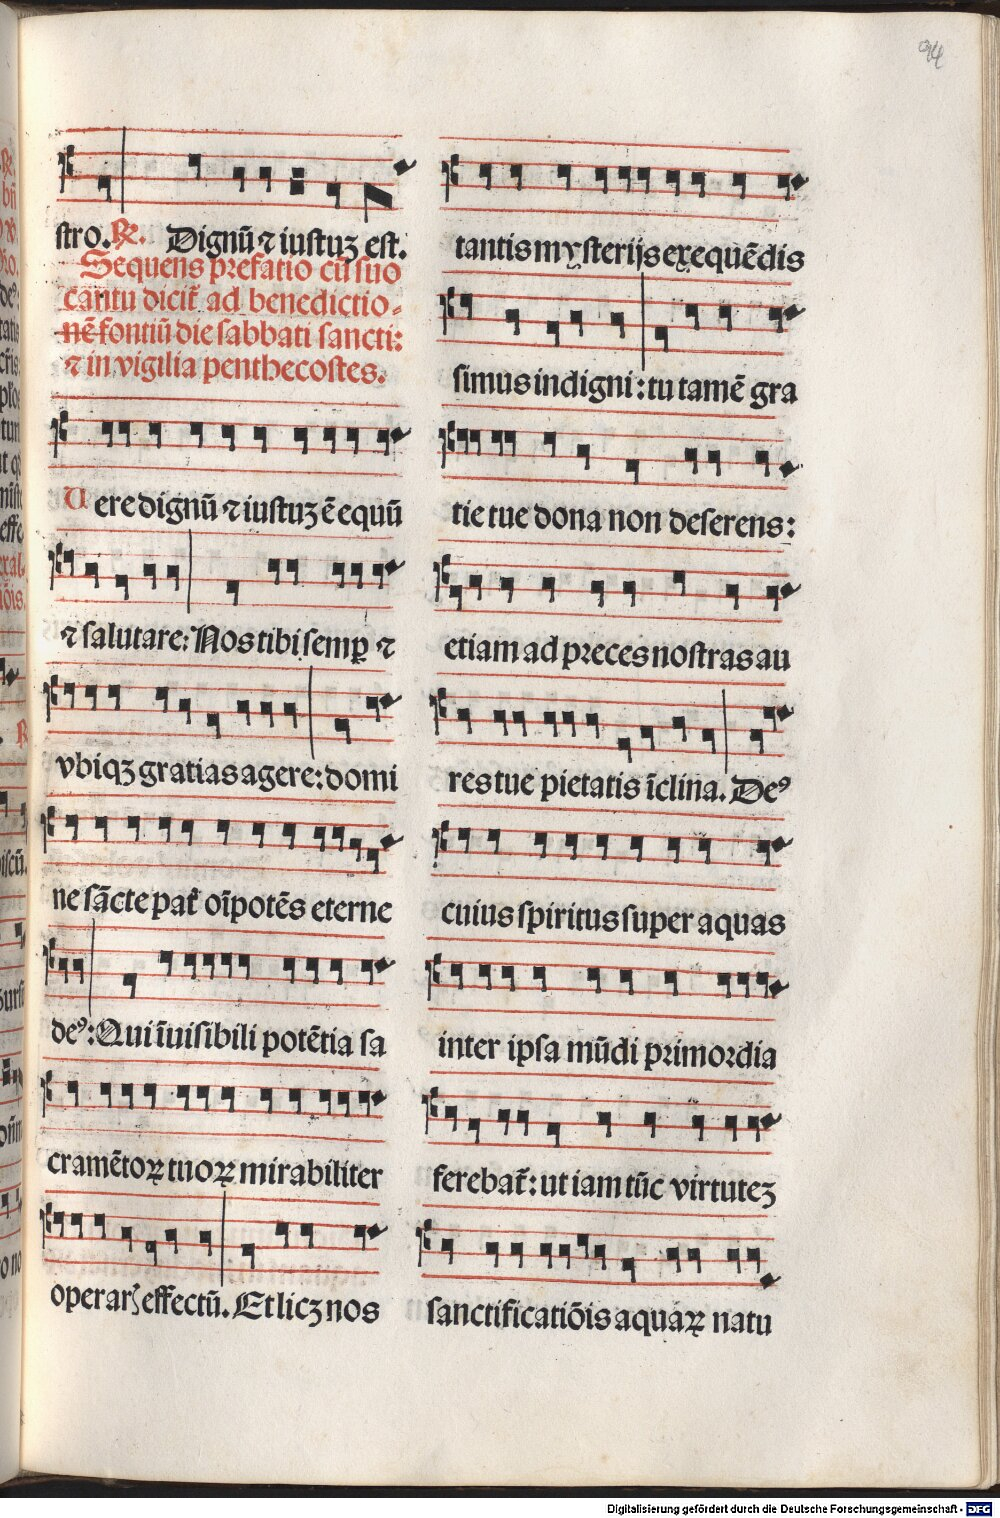 94
stro. ℟. Dignū ⁊ iustuȝ est.
Sequens prefatio cū suo
cantu dicit̄ ad benedictio-
nē fontiū die sabbati sancti:
⁊ in vigilia penthecostes.
Uere dignū ⁊ iustuȝ ē equū
⁊ salutare: Nos tibi semꝑ ⁊
vbiqꝫ gratias agere: domi
ne sācte pat̄ oīpotēs eterne
deꝰ: Qui īuisibili potētia sa
cramētoꝝ tuoꝝ mirabiliter
operar̄ effectū. Et licꝫ nos
tantis mysterijs exequēdis
simus indigni: tu tamē gra
tie tue dona non deserens:
etiam ad preces nostras au
res tue pietatis īclina. Deꝰ
cuius spiritus super aquas
inter ipsa mūdi primordia
ferebat̄: ut iam tūc virtuteȝ
sanctificatiōis aquaꝝ natu
Digitalisierung gefördert durch die Deutsche Forschungsgemeinschaft - DFG